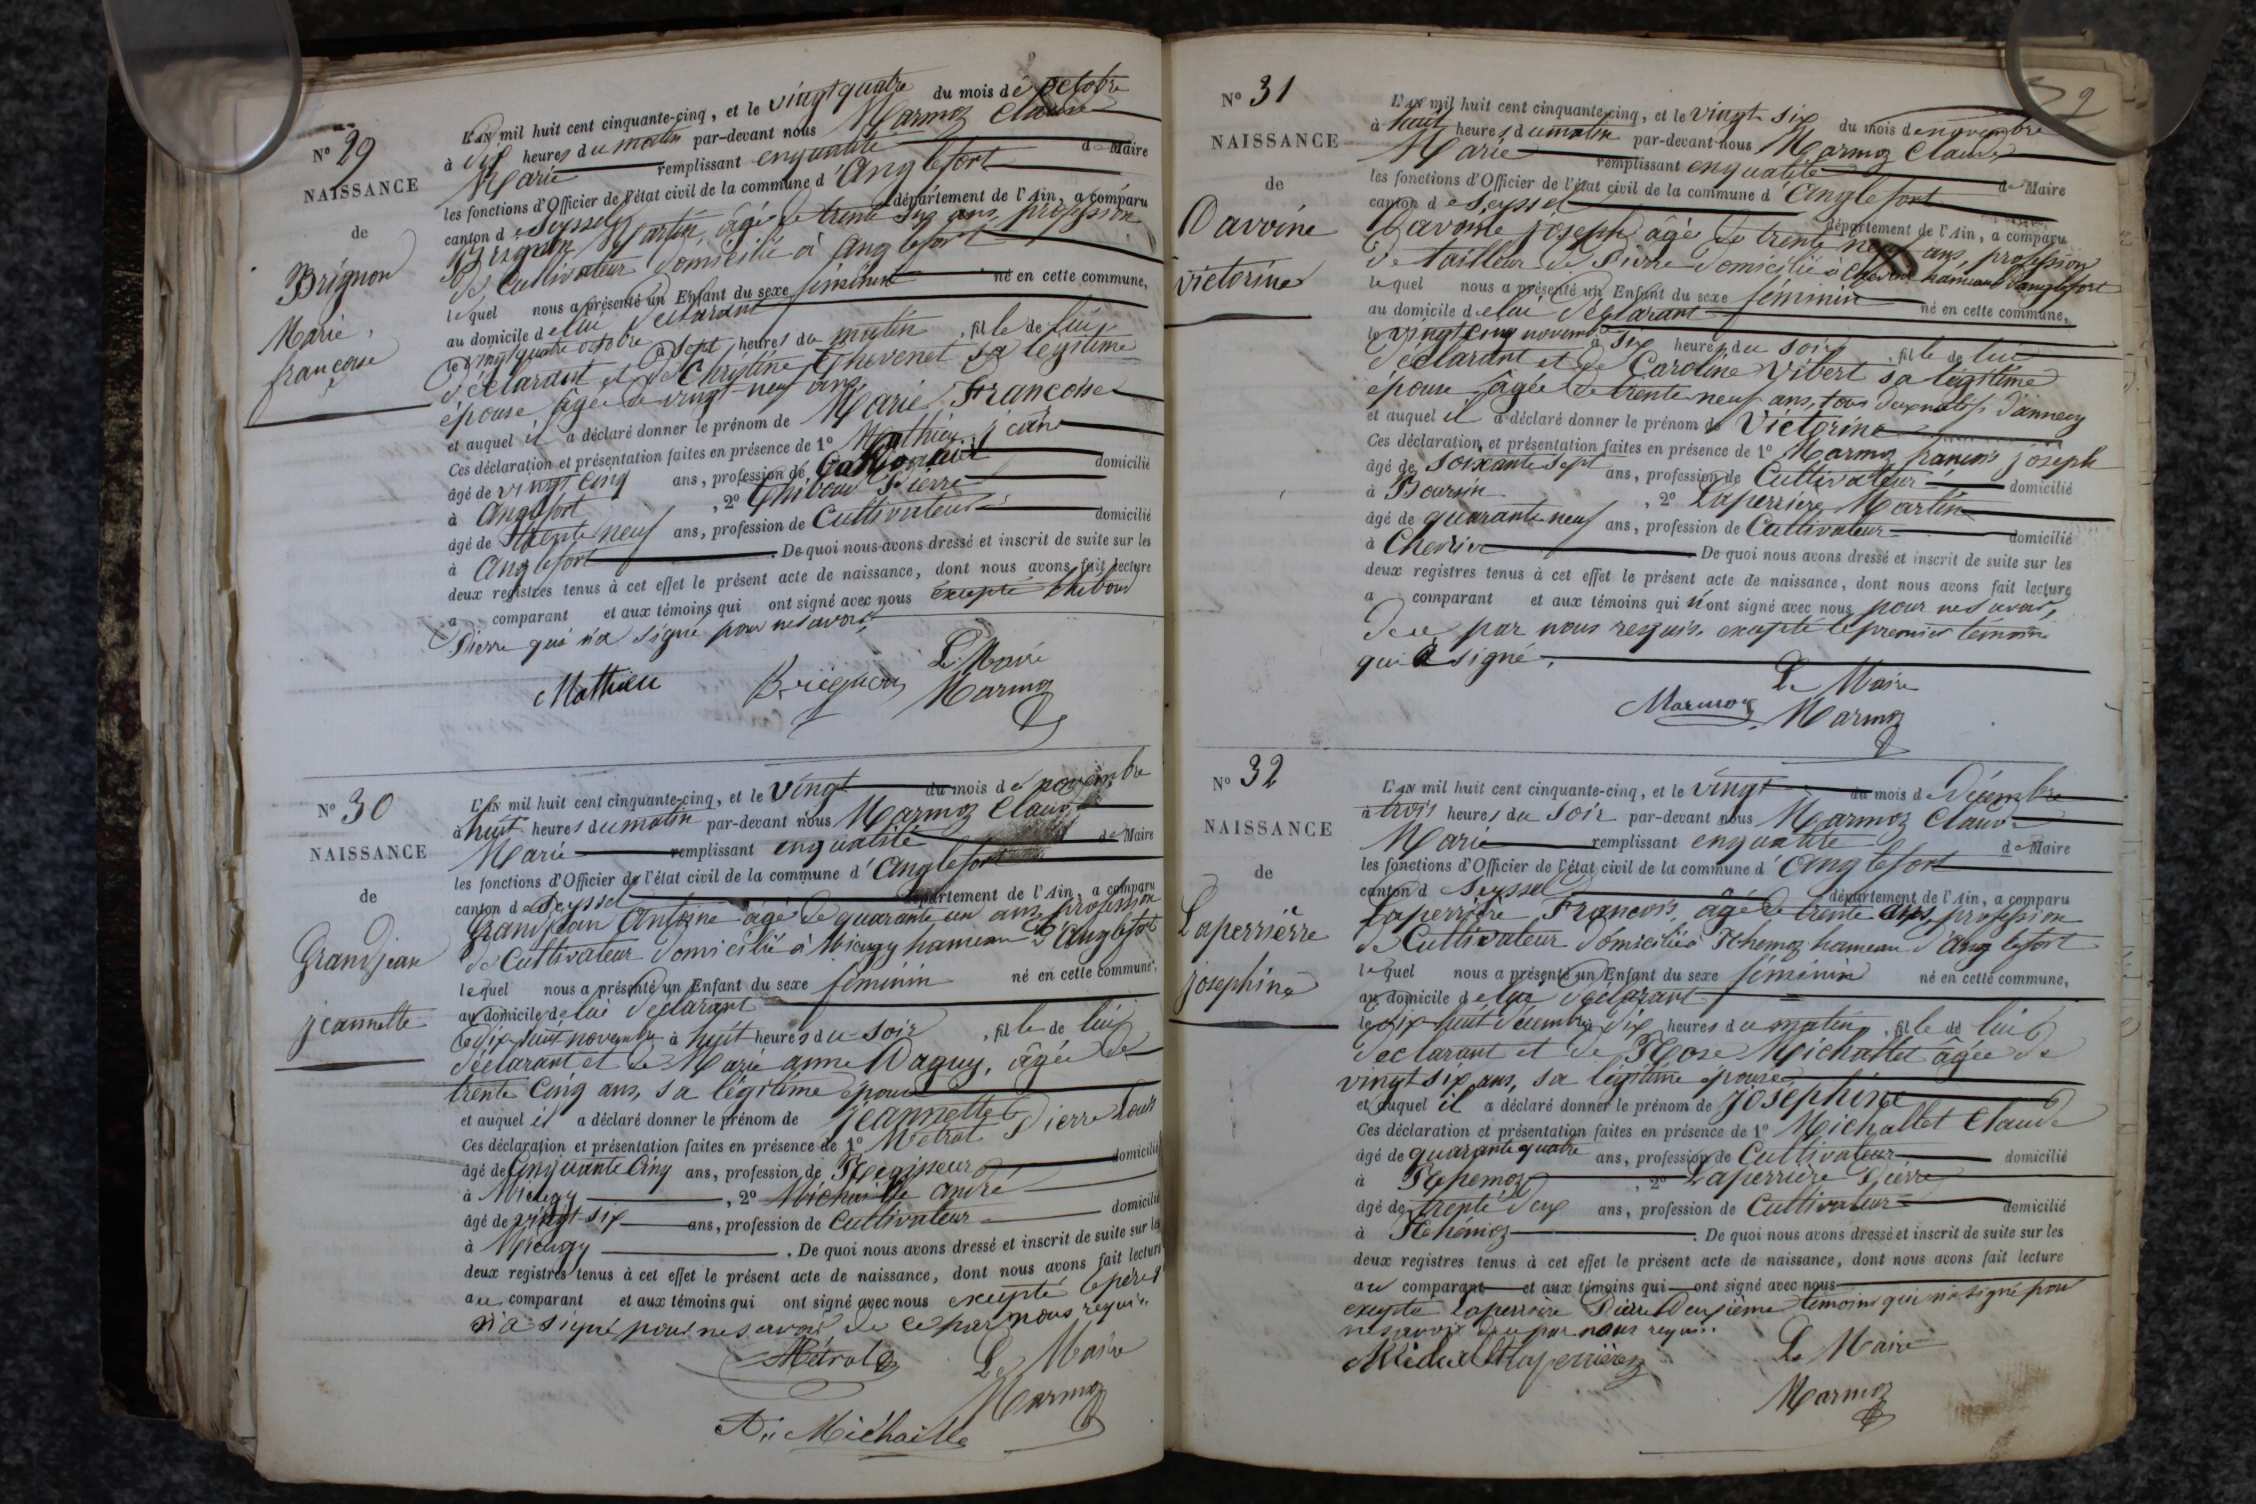 N° 29
NAISSANCE
de
Brignon
Marie
francoise
L'AN mil huit cent cinquante-cinq, et le vingt quatre du mois de octobre
à dix heures du matin par-devant nous Marmoz Claude
Marie remplissant en qualité de Maire
les fonctions d'Officier de l'état civil de la commune d'Anglefort
canton de Seyssel département de l'Ain, a comparu
Brignon Martin, âgé de trente six ans, profession
de Cultivateur domicilié à Anglefort
lequel nous a présenté un Enfant du sexe féminin né en cette commune,
au domicile de lui déclarant
le vingt quatre octobre à sept heures du matin, fille de lui
déclarant et de Christine Thevenet sa légitime
épouse âgée de vingt-neuf ans
et auquel il a déclaré donner le prénom de Marie Francoise
Ces déclaration et présentation faites en présence de 1° Mathieu jean
âgé de vingt cinq ans, profession de domicilié
à Anglefort, 2° Thiboud Pierre
âgé de trente neuf ans, profession de Cultivateur domicilié
à Anglefort. De quoi nous avons dressé et inscrit de suite sur les
deux registres tenus à cet effet le présent acte de naissance, dont nous avons fait lecture
a comparant et aux témoins qui ont signé avec nous excepté thiboud
Pierre qui n'a signé pour ne savoir
Mathieu Brignon Le Maire
Marmoz
N° 30
NAISSANCE
de
Grandjean
jeannette
L'AN mil huit cent cinquante-cinq, et le vingt du mois de novembre
à huit heures du matin par-devant nous Marmoz Claude
Marie remplissant en qualité de Maire
les fonctions d'Officier de l'état civil de la commune d'Anglefort
canton de Seyssel département de l'Ain, a comparu
Grandjean Antoine âgé de quarante un ans, profession
de Cultivateur domicilié à Mieugy hameau d'Anglefort
lequel nous a présenté un Enfant du sexe féminin né en cette commune,
au domicile de lui déclarant
le dix huit novembre à huit heures du soir, fille de lui
déclarant et de Marie anne Daguy, âgée de
trente cinq ans, sa légitime épouse
et auquel il a déclaré donner le prénom de jeannette
Ces déclaration et présentation faites en présence de 1° Métral Pierre Louis
âgé de Cinquante Cinq ans, profession de Régisseur domicilié
à Mieugy, 2° Michaille andré
âgé de vingt-six ans, profession de Cultivateur domicilié
à Mieugy. De quoi nous avons dressé et inscrit de suite sur les
deux registres tenus à cet effet le présent acte de naissance, dont nous avons fait lecture
au comparant et aux témoins qui ont signé avec nous excepté le père
n'a signé pour ne savoir de ce par nous requis.
Métral Le Maire
Marmoz
An Michaille
9
N° 31
NAISSANCE
de
Davoine
victorine
L'AN mil huit cent cinquante-cinq, et le vingt six du mois de novembre
à huit heures du matin par-devant nous Marmoz Claude
Marie remplissant en qualité de Maire
les fonctions d'Officier de l'état civil de la commune d'Anglefort
canton de Seyssel département de l'Ain, a comparu
Davoine joseph âgé de trente neuf ans, profession
de tailleur de Pierre domicilié à Chevrier hameau d'anglefort
lequel nous a présenté un Enfant du sexe féminin né en cette commune,
au domicile de lui déclarant
le vingt cinq novembre à six heures du soir, fille de lui
déclarant et de Caroline Vibert sa légitime
épouse âgée de trente neuf ans, tous deux natifs d'annecy
et auquel il a déclaré donner le prénom de Victorine
Ces déclaration et présentation faites en présence de 1° Marmoz francois joseph
âgé de soixante sept ans, profession de Cultivateur domicilié
à Boursin, 2° Laperrière Martin
âgé de quarante neuf ans, profession de Cultivateur domicilié
à Chevrier. De quoi nous avons dressé et inscrit de suite sur les
deux registres tenus à cet effet le présent acte de naissance, dont nous avons fait lecture
a comparant et aux témoins qui n'ont signé avec nous pour ne savoir,
de ce par nous requis, excepté le premier témoin
qui a signé.
Le Maire
Marmoz Marmoz
N° 32
NAISSANCE
de
Laperrièrre
josephine
L'AN mil huit cent cinquante-cinq, et le vingt du mois de Décembre
à trois heures du soir par-devant nous Marmoz Claude
Marie remplissant en qualité de Maire
les fonctions d'Officier de l'état civil de la commune d'Anglefort
canton d Seyssel département de l'Ain, a comparu
Laperrière Francois, âgé de trente ans, profession
de Cultivateur domicilié à Rhemoz hameau d'Anglefort
lequel nous a présenté un Enfant du sexe féminin né en cette commune,
au domicile de lui déclarant
le dix huit décembre à dix heures du matin, fille de lui
déclarant et de Rose Michallet âgée de
vingt six ans, sa légitime épouse
et auquel il a déclaré donner le prénom de joséphine
Ces déclaration et présentation faites en présence de 1° Michallet Claude
âgé de quarante quatre ans, profession de Cultivateur domicilié
à Rhemoz, 2° Laperrière Pierre
âgé de trente deux ans, profession de Cultivateur domicilié
à Rhémoz. De quoi nous avons dressé et inscrit de suite sur les
deux registres tenus à cet effet le présent acte de naissance, dont nous avons fait lecture
au comparant et aux témoins qui ont signé avec nous
excepté Laperrière Pierre deuxième témoin qui n'a signé pour
ne savoir de ce par nous requis.
Le Maire
Marmoz